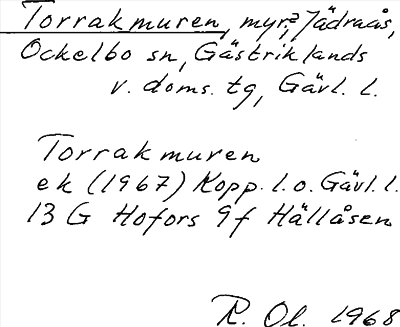 Torrakmuren, myr, Jädraås,
Ockelbo sn, Gästriklands
v. doms. tg, Gävl. l.
Torrakmuren
ek (1967) Kopp. l. o. Gävl. l.
13 G Hofors 9f Hällåsen
R. Ol. 1968